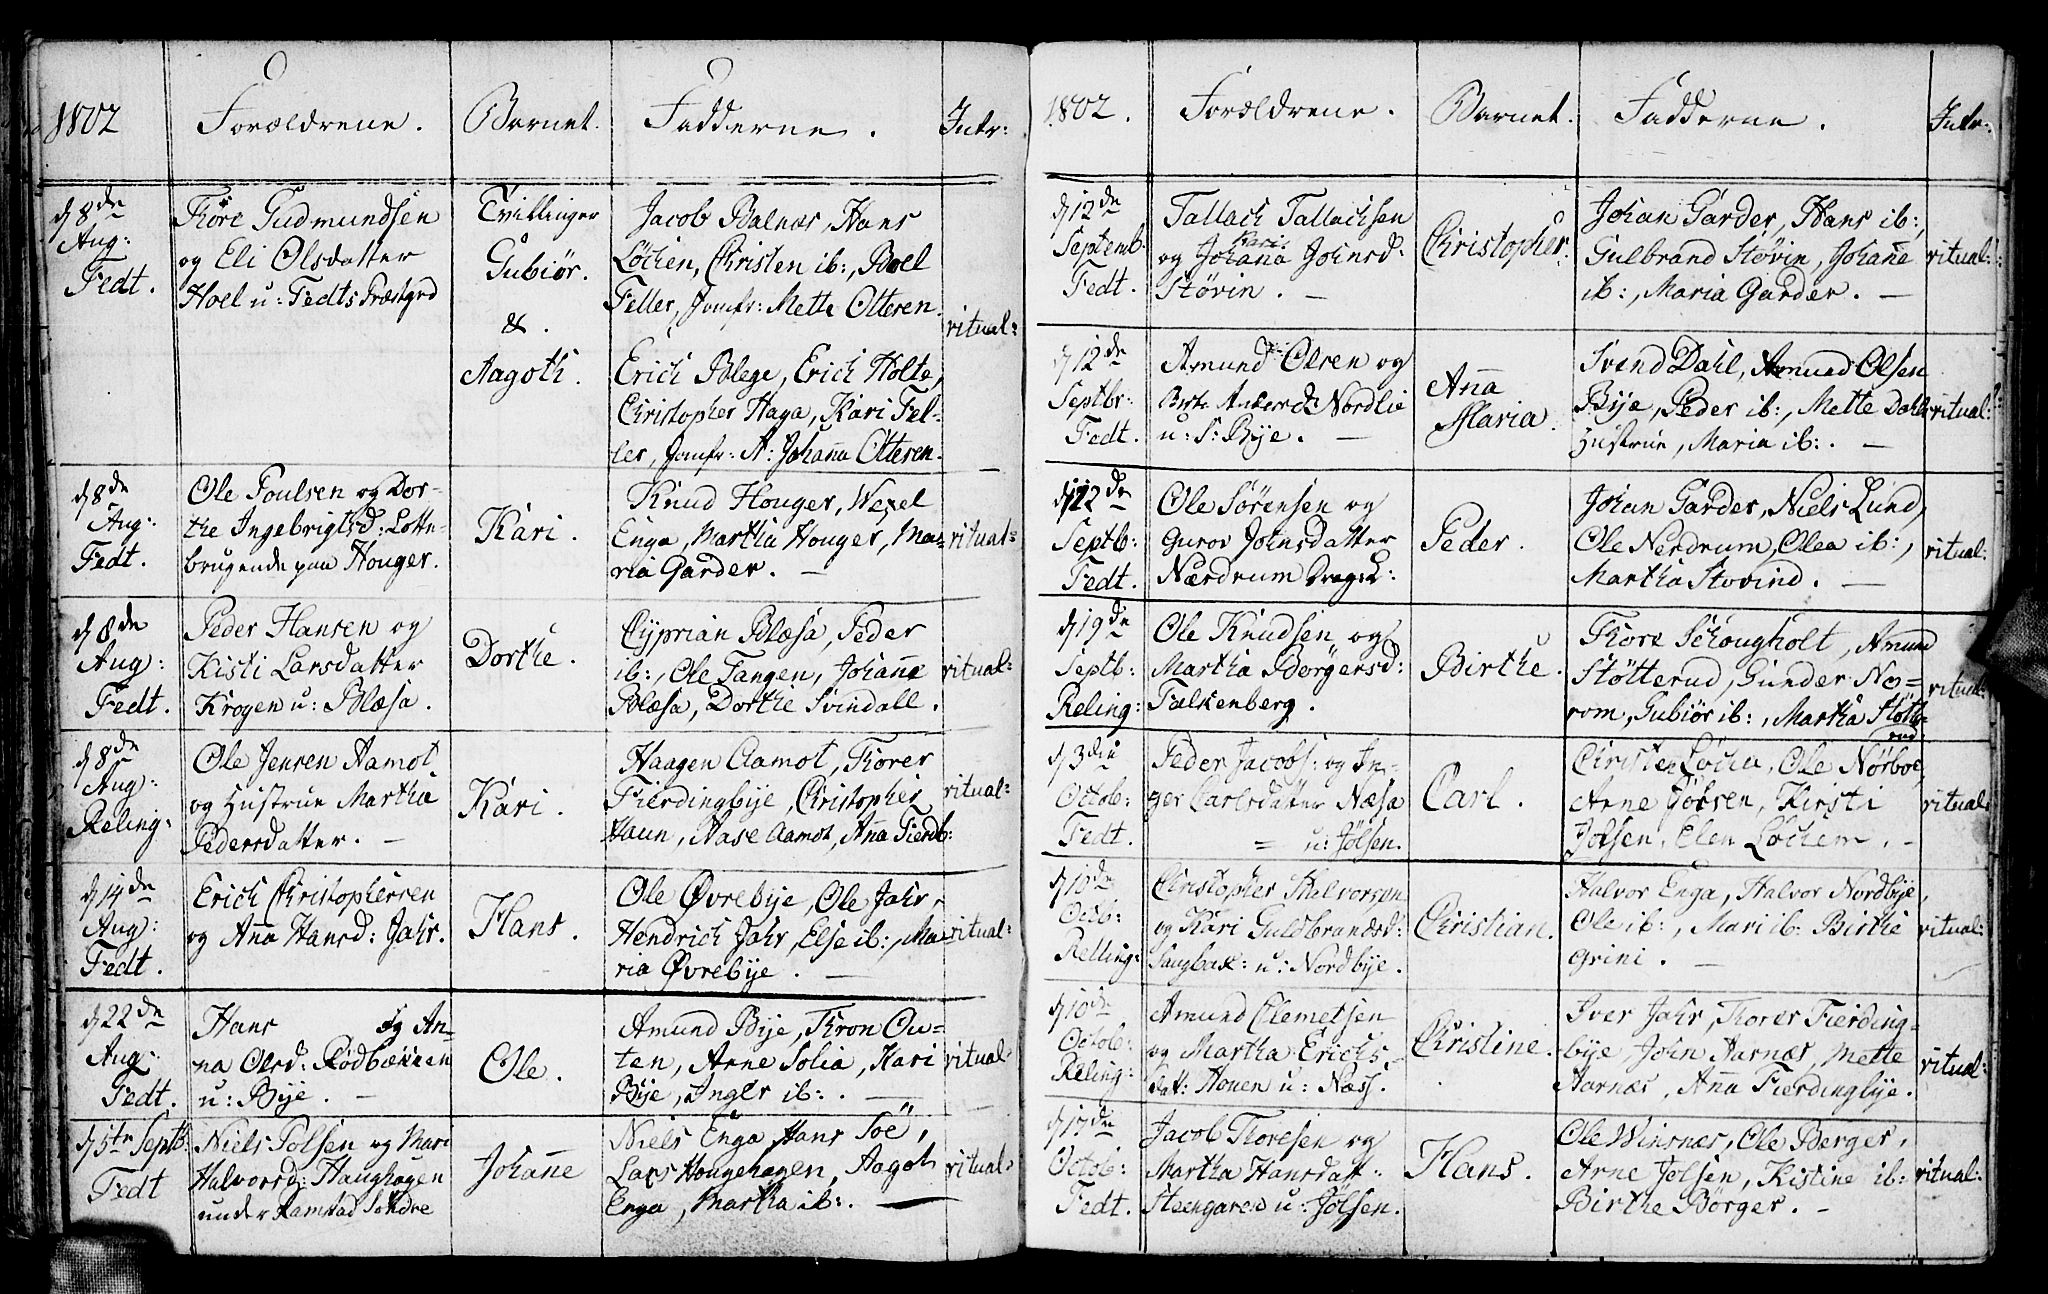 1802
Forældrene.
Barnet.
Fadderne.
Intr:
d 8de
Aug:
Fedt.
Tore Gudmundsen
og Eli Olsdatter
Hoel u: Fedts Præstgrd
Tvillinger
Gubiør.
&.
Aagoth.
Jacob Balnæs, Hans
Løchen, Christen ib:, Boel
Feller, Jomfr: Mette Otteren.
Erich Blege, Erich Holte,
Christopher Haga, Kari Fel-
ler, Jomfr: A: Johaña Otteren.
ritual:
d 8de
Aug:
Fedt.
Ole Poulsen og Dor-
the Ingebrigtsd: Lotte-
brugende paa Houger.
Kari.
Knud Houger, Wexel
Enga, Martha Houger, Ma-
ria Garder. —
ritual:
d 8de
Aug:
Fedt.
Peder Hansen og
Kisti Larsdatter
Krogen u: Blæsa.
Dorthe.
Cyprian Blæsa, Peder
ib:, Ole Tangen, Johañe
Blæsa, Dorthe Svindall.
ritual:
d 8de
Aug:
Reling:
Ole Jensen Aamot
og Hustrue Martha
Pedersdatter. —
Kari.
Haagen Aamot, Torer
Fierdingbye, Christopher
Haun, Aase Aamot, Aña Fierdb:
ritual:
d 14de
Aug:
Fedt.
Erich Christophersen
og Aña Hansd: Jahr.
Hans.
Ole Øvrebye, Ole Jahr,
Hendrich Jahr, Else ib:, Ma-
ria Øvrebye. —
ritual:
d 22de
Aug:
Fedt.
Hans og An-
na Olsd: Rødbækken
u: Bye. —
Ole.
Amund Bye, Tron Ou-
ten, Arne Solia, Kari
Bye, Ingler ib:. —
ritual:
d 5te Septb:
Fedt
Niels Polsen og Mari
Halvorsd: Haughagen
under Ramstad Søndre
Johañe
Niels Enga, Hans Søe,
Lars Hougehagen, Aagot
Enga, Martha ib:. —
ritual:
1802.
Forældrene.
Barnet.
Fadderne.
Intr:
d 12de
Septemb:
Fedt.
Tallach Tallachsen
Kari
og Johaña Johnsd:
Støvin. —
Christopher.
Johan Garder, Hans ib:,
Gulbrand Støvin, Johañe
ib:, Maria Garder. —
ritual:
d 12de
Septbr:
Fedt.
Amund Olsen og
Berte Andersd: Nordlie
u: S: Bye. —
Aña
Maria.
Svend Dahl, Amund Olsen
Bye, Peder ib:, Mette Dahls
Hustrue, Maria ib:. —
ritual:
d 12de
Septb:
Fedt.
Ole Sørensen og
Guroe Johnsdatter
Nærdrum
Peder.
Johan Garder, Niels Lund,
Ole Nerdrum, Olea ib:,
Martha Stovind. —
ritual:
d 19de
Septb:
Reling:
Ole Knudsen og
Martha Børgersd:
Falkenberg.
Birthe.
Tore Schougholt, Amund
Støtterud, Gunder No-
rom, Gubiør ib:, Martha Støtte-
rud
ritual:
d 3die
Octob:
Fedt.
Peder Jacobs: og In-
ger Carlsdatter Næsa
= u: Jølsen.
Carl.
Christen Løchen, Ole Nørboe,
Arne Jølsen, Kirsti
Jølsen, Elen Løchem. —
ritual:
d 10de
Octb:
Relling:
Christopher Halvorsen
og Kari Guldbrandsd:
Saugbak: u: Nordbye.
Christian.
Halvor Enga, Halvor Nordbye,
Ole ib:, Mari ib: Birthe
Grini. —
ritual:
d 10de
Octob:
Reling:
Amund Clemetsen
og Martha Erichs-
datt: Houen u: Næss.
Christine.
Iver Jahr, Torer Fierding-
bye, John Aarnæs, Mette
Aarnæs, Aña Fierdingbye.
ritual:
d 17den
Octob:
Fedt.
Jacob Toresen og
Martha Hansdatt:
Steengaren u: Jølsen.
Hans.
Ole Winsnæs, Ole Berger,
Arne Jølsen, Kistine ib:
Birthe Børger. —
ritual: